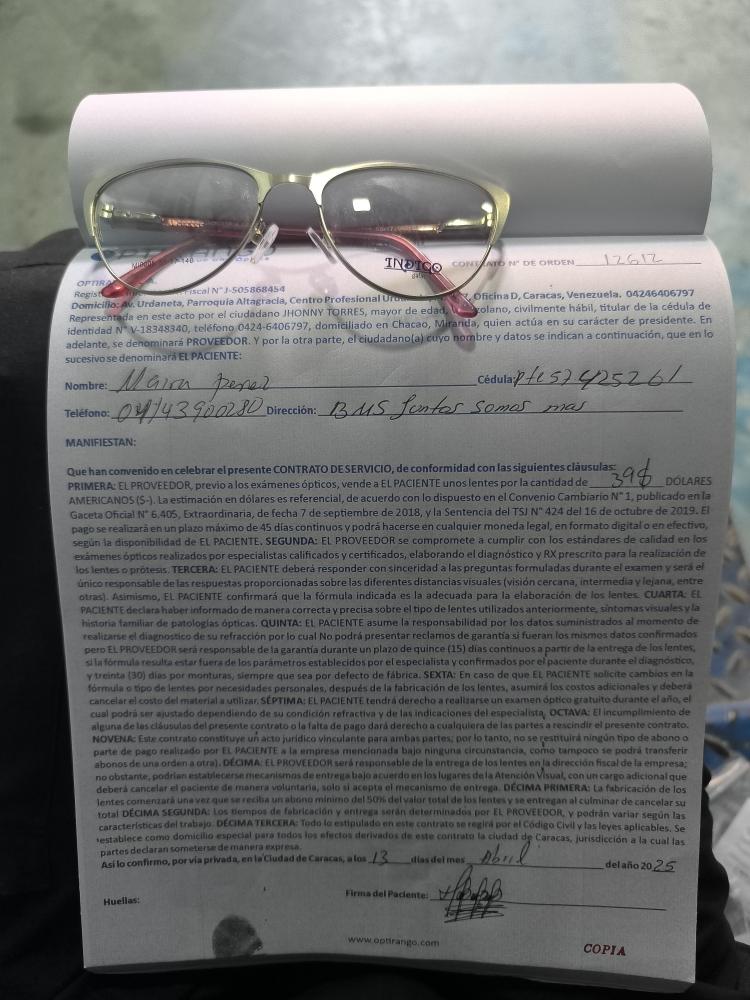 INDIGO
CONTRATO N° DE ORDEN 12612
OPTIRA
Regist Fiscal N° J-505868454
Domicilio: Av. Urdaneta, Parroquia Altagracia, Centro Profesional Oficina D, Caracas, Venezuela. 04246406797
Representada en este acto por el ciudadano JHONNY TORRES, mayor de edad, civilmente hábil, titular de la cédula de
identidad N° V-18348340, teléfono 0424-6406797, domiciliado en Chacao, Miranda, quien actúa en su carácter de presidente. En
adelante, se denominará PROVEEDOR. Y por la otra parte, el ciudadano(a) cuyo nombre y datos se indican a continuación, que en lo
sucesivo se denominará EL PACIENTE:
Nombre: Maira perez Cédula: 57425261
Teléfono: 04143900280 Dirección: BMS Juntos somos mas
MANIFIESTAN:
Que han convenido en celebrar el presente CONTRATO DE SERVICIO, de conformidad con las siguientes cláusulas:
PRIMERA: EL PROVEEDOR, previo a los exámenes ópticos, vende a EL PACIENTE unos lentes por la cantidad de 39$ DÓLARES
AMERICANOS ($-). La estimación en dólares es referencial, de acuerdo con lo dispuesto en el Convenio Cambiario N° 1, publicado en la
Gaceta Oficial N° 6.405, Extraordinaria, de fecha 7 de septiembre de 2018, y la Sentencia del TSJ N° 424 del 16 de octubre de 2019. El
pago se realizará en un plazo máximo de 45 días continuos y podrá hacerse en cualquier moneda legal, en formato digital o en efectivo,
según la disponibilidad de EL PACIENTE. SEGUNDA: EL PROVEEDOR se compromete a cumplir con los estándares de calidad en los
exámenes ópticos realizados por especialistas calificados y certificados, elaborando el diagnóstico y RX prescrito para la realización de
los lentes o prótesis. TERCERA: EL PACIENTE deberá responder con sinceridad a las preguntas formuladas durante el examen y será el
único responsable de las respuestas proporcionadas sobre las diferentes distancias visuales (visión cercana, intermedia y lejana, entre
otras). Asimismo, EL PACIENTE confirmará que la fórmula indicada es la adecuada para la elaboración de los lentes. CUARTA: EL
PACIENTE declara haber informado de manera correcta y precisa sobre el tipo de lentes utilizados anteriormente, síntomas visuales y la
historia familiar de patologías ópticas. QUINTA: EL PACIENTE asume la responsabilidad por los datos suministrados al momento de
realizarse el diagnostico de su refracción por lo cual No podrá presentar reclamos de garantía si fueran los mismos datos confirmados
pero EL PROVEEDOR será responsable de la garantía durante un plazo de quince (15) días continuos a partir de la entrega de los lentes,
si la fórmula resulta estar fuera de los parámetros establecidos por el especialista y confirmados por el paciente durante el diagnóstico,
y treinta (30) días por monturas, siempre que sea por defecto de fábrica. SEXTA: En caso de que EL PACIENTE solicite cambios en la
fórmula o tipo de lentes por necesidades personales, después de la fabricación de los lentes, asumirá los costos adicionales y deberá
cancelar el costo del material a utilizar. SÉPTIMA: EL PACIENTE tendrá derecho a realizarse un examen óptico gratuito durante el año, el
cual podrá ser ajustado dependiendo de su condición refractiva y de las indicaciones del especialista. OCTAVA: El incumplimiento de
alguna de las cláusulas del presente contrato o la falta de pago dará derecho a cualquiera de las partes a rescindir el presente contrato.
NOVENA: Este contrato constituye un acto jurídico vinculante para ambas partes; por lo tanto, no se restituirá ningún tipo de abono o
parte de pago realizado por EL PACIENTE a la empresa mencionada bajo ninguna circunstancia, como tampoco se podrá transferir
abonos de una orden a otra). DÉCIMA: EL PROVEEDOR será responsable de la entrega de los lentes en la dirección fiscal de la empresa;
no obstante, podrían establecerse mecanismos de entrega bajo acuerdo en los lugares de la Atención Visual, con un cargo adicional que
deberá cancelar el paciente de manera voluntaria, solo si acepta el mecanismo de entrega. DÉCIMA PRIMERA: La fabricación de los
lentes comenzará una vez que se reciba un abono mínimo del 50% del valor total de los lentes y se entregan al culminar de cancelar su
total DÉCIMA SEGUNDA: Los tiempos de fabricación y entrega serán determinados por EL PROVEEDOR, y podrán variar según las
características del trabajo. DÉCIMA TERCERA: Todo lo estipulado en este contrato se regirá por el Código Civil y las leyes aplicables. Se
establece como domicilio especial para todos los efectos derivados de este contrato la ciudad de Caracas, jurisdicción a la cual las
partes declaran someterse de manera expresa.
Así lo confirmo, por vía privada, en la Ciudad de Caracas, a los 13 días del mes Abril del año 2025
Huellas: Firma del Paciente:
www.optirango.com
COPIA